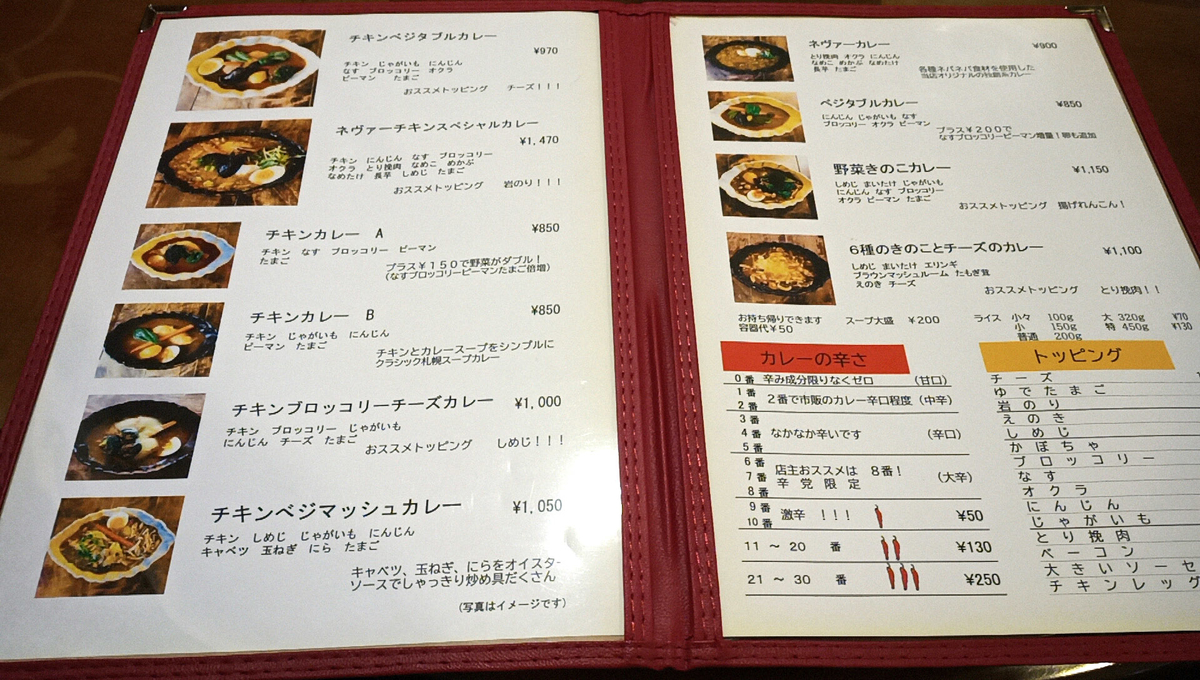 チキンベジタブルカレー
¥970
チキン じゃがいも にんじん
なす ブロッコリー オクラ
ピーマン たまご
おススメトッピング チーズ!!!
ネヴァーチキンスペシャルカレー
¥1,470
チキン にんじん なす ブロッコリー
オクラ とり挽肉 なめこ めかぶ
なめたけ 長芋 しめじ たまご
おススメトッピング 岩のり!!!
チキンカレー A
¥850
チキン なす ブロッコリー ピーマン
たまご
プラス¥150で野菜がダブル!
(なすブロッコリーピーマンたまご倍増)
チキンカレー B
¥850
チキン じゃがいも にんじん
ピーマン たまご
チキンとカレースープをシンプルに
クラシック札幌スープカレー
チキンブロッコリーチーズカレー
¥1,000
チキン ブロッコリー じゃがいも
にんじん チーズ たまご
おススメトッピング しめじ!!!
チキンベジマッシュカレー
¥1,050
チキン しめじ じゃがいも にんじん
キャベツ 玉ねぎ にら たまご
キャベツ、玉ねぎ、にらをオイスター
ソースでしゃっきり炒め具だくさん
(写真はイメージです)
ネヴァーカレー
¥900
とり挽肉 オクラ にんじん
なめこ めかぶ なめたけ
長芋 たまご
各種ネバネバ食材を使用した
当店オリジナルの独創系カレー
ベジタブルカレー
¥850
にんじん じゃがいも なす
ブロッコリー オクラ ピーマン
プラス¥200で
なすブロッコリーピーマン増量!卵も追加
野菜きのこカレー
¥1,150
しめじ まいたけ じゃがいも
にんじん なす ブロッコリー
オクラ ピーマン たまご
おススメトッピング 揚げれんこん!
6種のきのことチーズのカレー
¥1,100
しめじ まいたけ エリンギ
ブラウンマッシュルーム たもぎ茸
えのき チーズ
おススメトッピング とり挽肉!!
お持ち帰りできます
容器代¥50
スープ大盛 ¥200
ライス 小々 100g 大 320g ¥70
小 150g 特 450g ¥130
普通 200g
カレーの辛さ
0番 辛み成分限りなくゼロ (甘口)
1番
2番
2番で市販のカレー辛口程度(中辛)
3番
4番 なかなか辛いです (辛口)
5番
6番
7番
8番
店主おススメは 8番!
辛党限定
(大辛)
9番
10番
激辛 !!! ¥50
11 ~ 20 番 ¥130
21 ~ 30 番 ¥250
トッピング
チーズ
ゆでたまご
岩のり
えのき
しめじ
かぼちゃ
ブロッコリー
なす
オクラ
にんじん
じゃがいも
とり挽肉
ベーコン
大きいソーセ
チキンレッグ